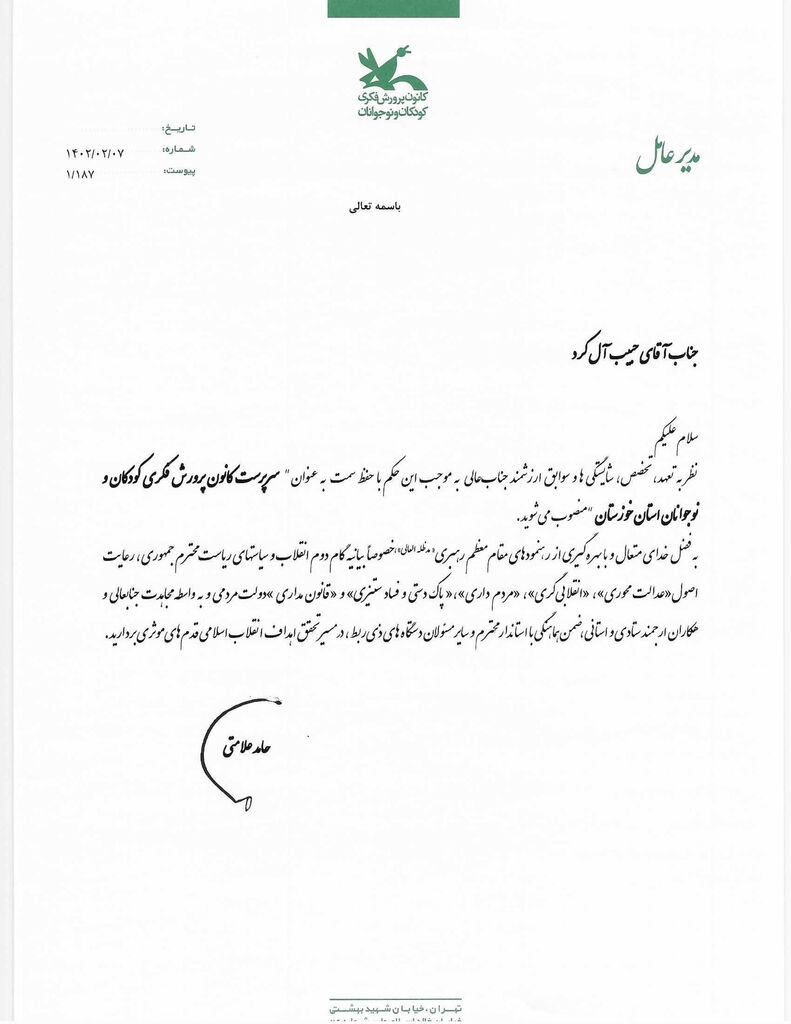 کانون پرورش فکری
کودکان و نوجوانان
مدیر عامل
تاریخ:
شماره: ۱۴۰۲/۰۲/۰۷
پیوست: ۱/۱۸۷
باسمه تعالی
جناب آقای حبیب آل کرد
سلام علیکم
نظر به تعهد، تخصص، شایستگی ها و سوابق ارزشمند جناب عالی به موجب این حکم با حفظ سمت به عنوان " سرپرست کانون پرورش فکری کودکان و
نوجوانان استان خوزستان " منصوب می شوید.
به فضل خدای متعال و با بهره گیری از رهنمودهای مقام معظم رهبری«مدظله العالی»،خصوصاً بیانیه گام دوم انقلاب و سیاستهای ریاست محترم جمهوری، رعایت
اصول «عدالت محوری»، «انقلابی گری»، «مردم داری»، «پاک دستی و فساد ستیزی» و «قانون مداری »دولت مردمی و به واسطه مجاهدت جنابعالی و
همکاران ارجمند ستادی و استانی،ضمن هماهنگی با استاندار محترم و سایر مسئولان دستگاه های ذی ربط، در مسیر تحقق اهداف انقلاب اسلامی قدم های موثری بردارید.
حامد علامتی
تهران، خیابان شهید بهشتی